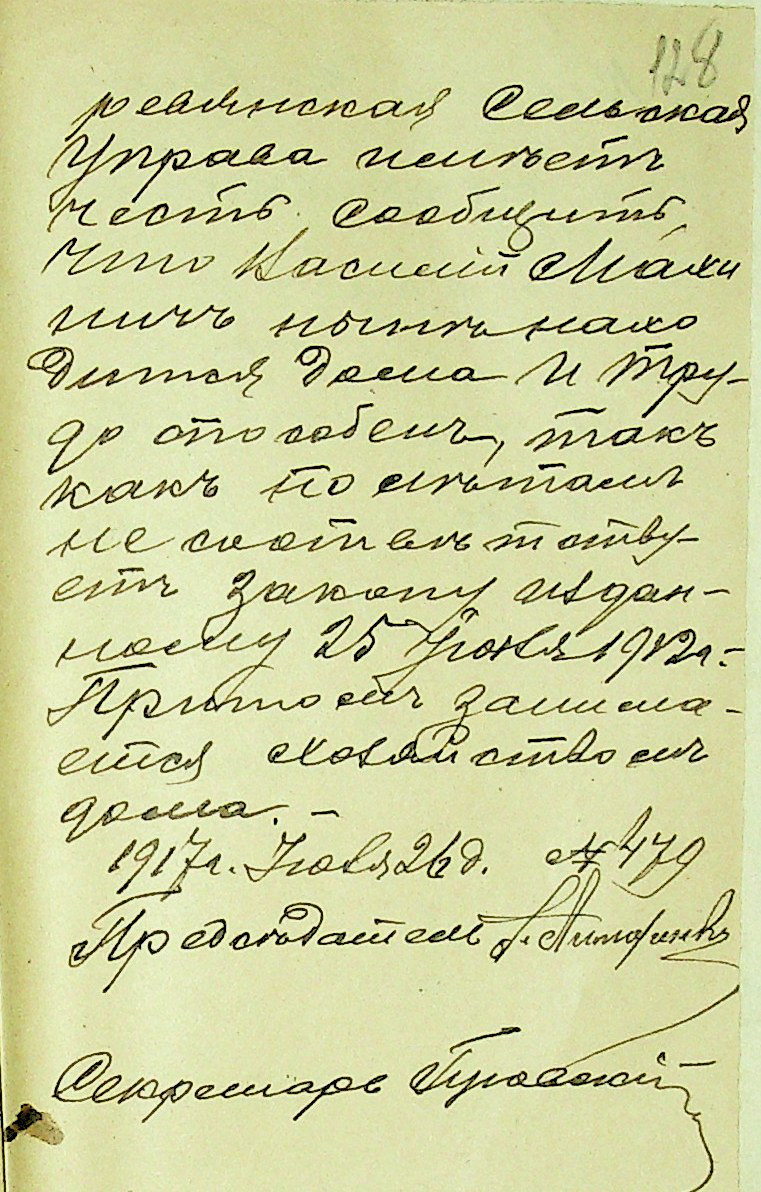 128
ревянская Сельская
Управа имѣетъ
честь сообщить,
что Василій Махи
ничъ нынѣ нахо
дится дома и тру-
до способенъ, такъ
какъ по лѣтамъ
не соотвѣтству-
етъ закону издан-
ному 25 Июня 1912 г.-
Притомъ занима-
ется хозяйствомъ
дома. -
1917 г. Июня 26 д. № 479
Председатель
Секретарь